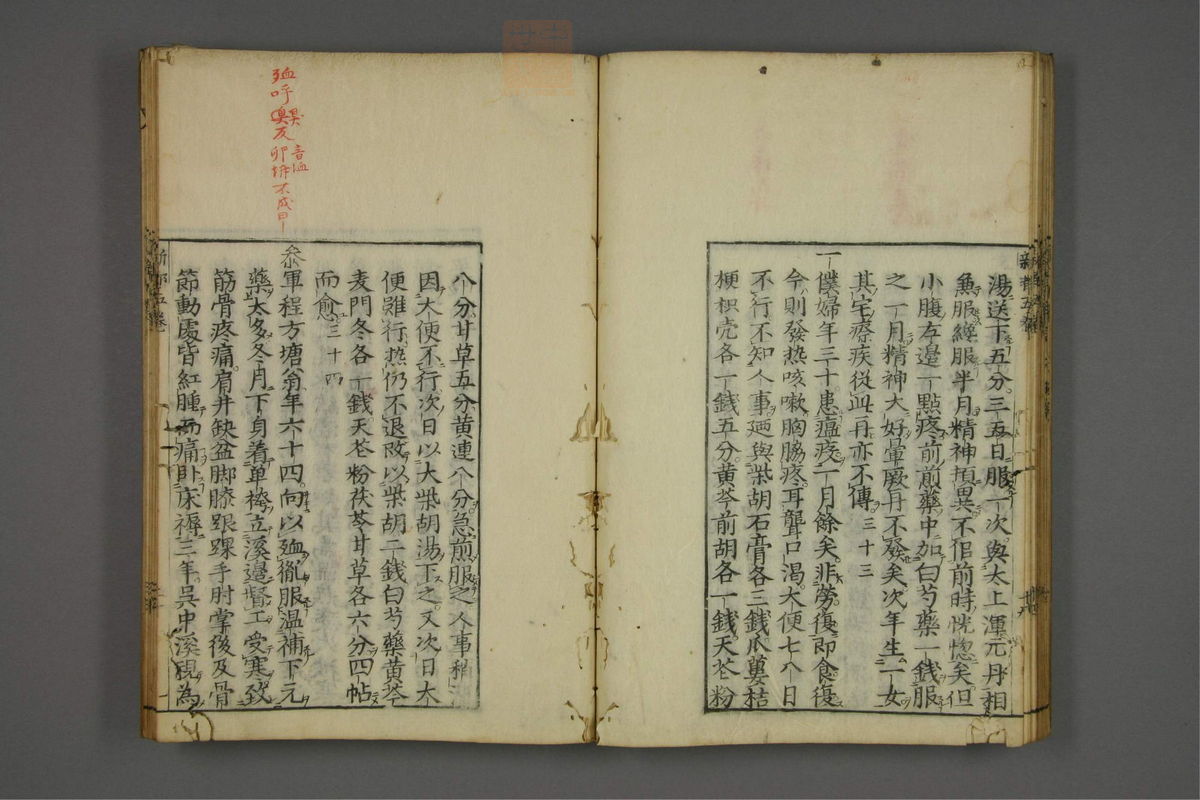 湯送下五分三五日服一次與太上渾元丹相
魚服纔服半月精神頂異不佀前時恍惚矣但
小腹左邊一點疼前前藥中加白芍藥一錢服
之一月精神大好暈厥再不發矣次年生一女
其宅療疾從此再亦不傳三十三
一僕婦年三十患瘟疫一月餘矣非勞復即食復
今則發热咳嗽胸脇疼耳聾口渴大便七八日
不行不知人事廼與柴胡石膏各三錢瓜蔞桔
梗枳壳各一錢五分黄芩前胡各一錢天花粉
八分甘草五分黄連八分急煎服之人事稍
因大便不行次日以大柴胡湯下之又次日大
便雖行热仍不退改以柴胡二錢白芍藥黄芩
麦門冬各一錢天花粉茯苓甘草各六分四帖
而愈三十四
叅軍程方塘翁年六十四向以殈胤服温補下元
藥太多冬月下身着单袴立溪邊督工受寒致
筋骨疼痛肩井缺盆脚膝跟踝手肘掌後及骨
節動處皆紅腫而痛卧床褥三年吳中溪視為
殈呼
臭反
音洫
卵拆不成曰